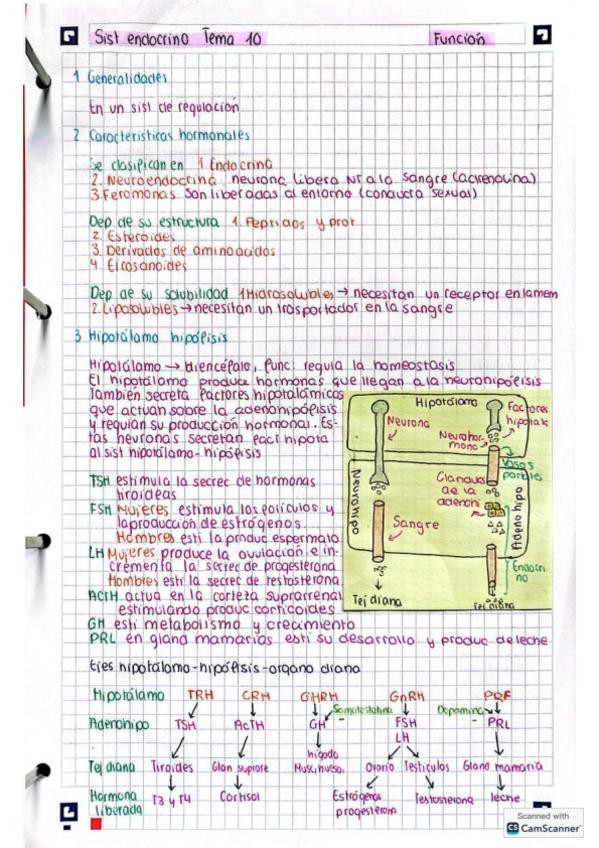 Sist endocrino Tema 10 Función
1 Generalidades
En un sist de regulación
2 Características hormonales
Se clasifican en 1. Endocrina
2. Neuroendocrina neurona libera NT a la sangre (adrenalina)
3. Feromonas son liberadas al entorno (conducta sexual)
Dep de su estructura 1. Peptidos y prot
2. Esteroides
3. Derivados de aminoacidos
4. Eicosanoides
Dep de su solubilidad 1 Hidrosolubles → necesitan un receptor en la mem
2. Liposolubles → necesitan un trasportador en la sangre
3 Hipotálamo hipófisis
Hipotálamo → diencéfalo, func: regula la homeostasis
El hipotálamo produce hormonas que llegan a la neurohipófisis
También secreta factores hipotalámicos
que actuan sobre la adenohipófisis
y regulan su producción hormonal. Es-
tas neuronas secretan fact hipota
al sist hipotálamo-hipófisis
TSH estimula la secrec de hormonas
tiroideas
FSH Mujeres estimula los folículos y
la producción de estrógenos
Hombres esti la produc espermato
LH Mujeres produce la ovulación e in-
crementa la secrec de progesterona
Hombres esti la secrec de testosterona
ACTH actua en la corteza suprarrenal
estimulando produc corticoides
GH esti metabolismo y crecimiento
PRL en gland mamarias esti su desarrollo y produc de leche
Hipotálamo
Neurona
Factores
hipotálc
Neurohor-
mona
Vasos
portales
Glandulas
de la
adenohi
Neurohipo
Adenohipo
Sangre
Endocri
no
Tej diana
Tej diana
Ejes hipotálamo-hipófisis-organo diana
Hipotálamo TRH CRH GHRH GnRH PRF
Somatostatina Dopamina
Adenohipo TSH ACTH GH FSH PRL
LH
Tej diana Tiroides Glan suprare hígado Ovario Testiculos Gland mamaria
Musc, hueso.
Hormona T3 y T4 Cortisol Estrógenos Testosterona leche
liberada progesterona
Scanned with
CS CamScanner